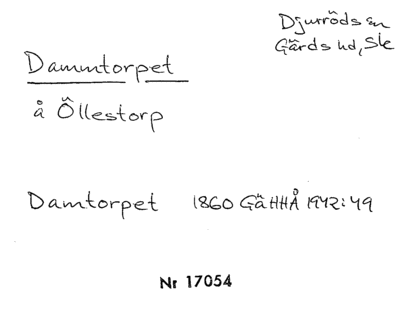 Djurröds sn
Gärds hd, Sk
Dammtorpet
å Öllestorp
Damtorpet 1860 GäHHÅ 1942:49
Nr 17054